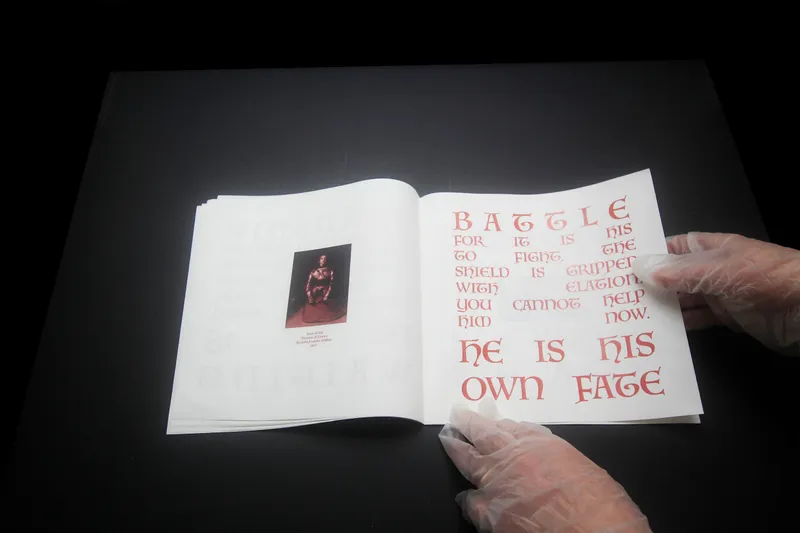 BATTLE
FOR IT IS HIS
TO FIGHT. THE
SHIELD IS GRIPPED
WITH ELATION.
YOU CANNOT HELP
HIM NOW.
HE IS HIS
OWN FATE